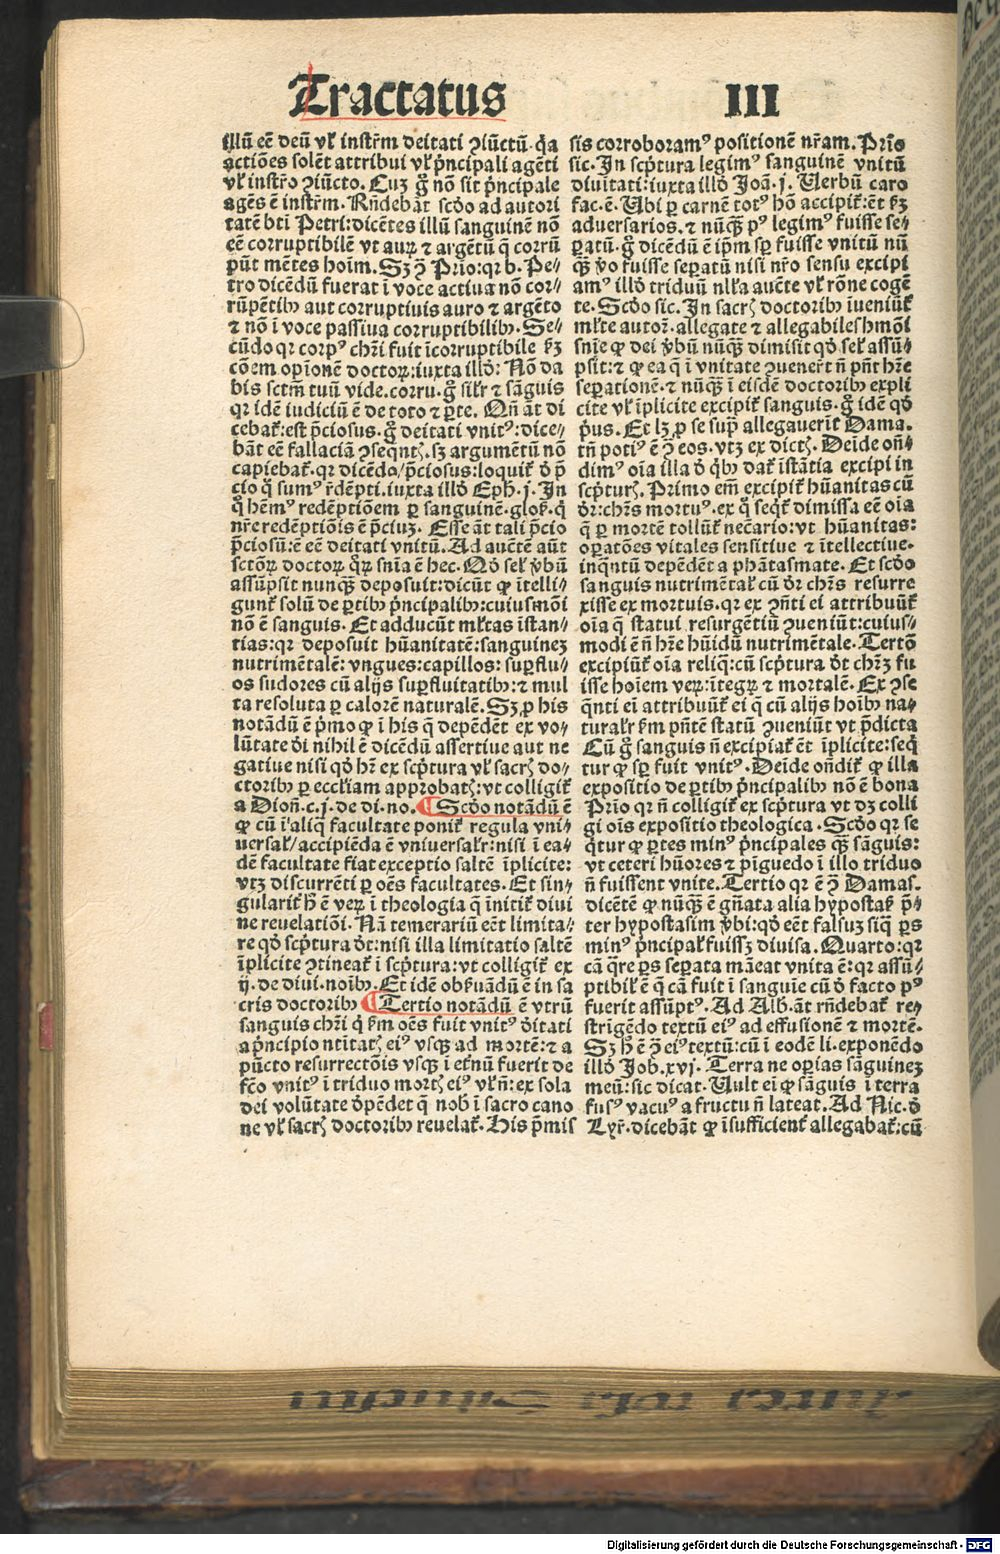 Tractatus III
illū eē deū vl' instr̄m deitati ꝯiūctū·q̄a
actiōes solēt attribui vl' p̄ncipali agēti
vl' instr̄o ꝯiūcto. Cuz g̊ nō sit p̄ncipale
agēs ē instr̄m. Rn̄debāt scd̄o ad autori
tatē bt̄i Petri:dicētes illū sanguinē nō
eē corruptibilē vt auꝝ ⁊ argētū q̄ corrū
pūt mētes hoīm. Sꝫ ꝯ̄ Prīo:qꝛ b. Pe⸗
tro dicēdū fuerat ī voce actiua nō cor⸗
rūpētibꝰ aut corruptiuis auro ⁊ argēto
⁊ nō ī voce passiua corruptibilibꝰ. Se⸗
cūdo qꝛ corpꝰ chr̄i fuit īcorruptibile ẜm
cōem opīonē doctoꝝ:iuxta illd̄: Nō da
bis sctm̄ tuū vide.corru. g̊ sil'r ⁊ sāguis
qꝛ idē iudiciū ē de toto ⁊ ꝑte. Qn̄ āt di
cebat̄:est p̄ciosus. g̊ deitati vnitꝰ:dice⸗
bāt eē fallaciā ꝯseqn̄t̄. sꝫ argumētū nō
capiebat̄. qꝛ dicēdo/p̄ciosus:loquit̄ d̓ p̄
cio q̊ sumꝰ r̄dēpti.iuxta illd̄ Eph.j. In
q̊ hēmꝰ redēptiōem ꝑ sanguinē.glos̄. q̄
nr̄e redēptiōis ē p̄ciuꝫ. Esse āt tali p̄cio
p̄ciosū:ē eē deitati vnitū. Ad auētē aūt
sctōꝝ doctoꝝ q̄ꝝ sn̄ia ē hec. Qd̄ sel' v̓bū
assūpsit nunqꝫ̄ deposuit:dicūt ꝙ ītelli⸗
gunt̄ solū de ꝑtibꝰ p̄ncipalibꝰ:cuiusmōi
nō ē sanguis. Et adducūt ml'tas īstan⸗
tias:qꝛ deposuit hūanitatē:sanguineꝫ
nutrimētalē: vngues:capillos: suꝑflu⸗
os sudores cū alijs suꝑfluitatibꝰ:⁊ mul
ta resoluta ꝑ calorē naturalē. Sꝫ ꝓ his
notādū ē p̄mo ꝙ ī his q̄ depēdēt ex vo⸗
lūtate d̓i nihil ē dicēdū assertiue aut ne
gatiue nisi qd̄ hr̄ ex scp̄tura vl' sacr̄ do⸗
ctoribꝰ ꝑ eccl'iam approbat̄:vt colligit̄
a Dion̄.c.j.de di.no. ¶ Scd̄o notādū ē
ꝙ cū ī aliq̄ facultate ponit̄ regula vni⸗
uersal'/accipiēda ē vniuersal'r:nisi ī ea⸗
dē facultate fiat exceptio saltē īplicite:
vtꝫ discurrēti ꝑ oēs facultates. Et sin⸗
gularit̄ h̄ ē veꝝ ī theologia q̄ īnitit̄ diui
ne reuelatiōi. Nā temerariū eēt limita⸗
re qd̄ scp̄tura d̓t:nisi illa limitatio saltē
īplicite ꝯtineat̄ ī scp̄tura:vt colligit̄ ex
ij. de diui.noībꝰ. Et idē obẜuādū ē in sa
cris doctoribꝰ ¶ Tertio notādū ē vtrū
sanguis chr̄i q̊ ẜm oēs fuit vnitꝰ d̓itati
a p̄ncipio nt̄itat̄ eiꝰ vsqꝫ ad mortē:⁊ a
pūcto resurrectōis vsqꝫ ī et̄nū fuerit de
fc̄o vnitꝰ ī triduo mort̄ eiꝰ vl' n̄: ex sola
dei volūtate d̓pēdet q̄ nob̄ ī sacro cano
ne vl' sacr̄ doctoribꝰ reuelat̄. His p̄mis
sis corroboramꝰ positionē nr̄am. Prīo
sic. In scp̄tura legimꝰ sanguinē vnitū
diuitati:iuxta illd̄ Joā.j. Uerbū caro
fac.ē. Ubi ꝑ carnē totꝰ hō accipit̄:ēt ẜm
aduersarios. ⁊ nūqꝫ̄ pꝰ legimꝰ fuisse se⸗
ꝑatū. g̊ dicēdū ē ip̄m sꝑ fuisse vnitū nū
qꝫ̄ v̓o fuisse seꝑatū nisi nr̄o sensu excipi
amꝰ illd̄ triduū nl'la auc̄te vl' rōne cogē
te. Scd̄o sic. In sacr̄ doctoribꝰ īueniūt̄
ml'te autoꝝ. allegate ⁊ allegabiles hmōi
sn̄ie ꝙ dei v̓bū nūqꝫ̄ dimisit qd̄ sel' assū⸗
psit:⁊ ꝙ ea q̄ ī vnitate ꝯuener̄t n̄ pn̄t hr̄e
seꝑationē.⁊ nūqꝫ̄ ī eisdē doctoribꝰ expli
cite vl' īplicite excipit̄ sanguis. g̊ idē qd̄
p̓us. Et lꝫ ꝓ se suꝑ allegauerīt Dama.
tn̄ potiꝰ ē ꝯ̄ eos. vtꝫ ex dict̄. Deīde on̄⸗
dimꝰ oīa illa d̓ q̓bꝰ dat̄ īstātia excipi in
scp̄tur̄. Primo em̄ excipit̄ hūanitas cū
d̓r:chr̄s mortuꝰ. ex q̊ seqt̄ dimissa eē oīa
q̄ ꝑ mortē tollūt̄ nec̄ario:vt hūanitas:
oꝑatōes vitales sensitiue ⁊ ītellectiue.
inqn̄tū depēdēt a phātasmate. Et scd̄o
sanguis nutrimētal' cū d̓r chr̄s resurre
xisse ex mortuis. qꝛ ex ꝯn̄ti ei attribuūt̄
oīa q̄ statui resurgētiū ꝯueniūt:cuius⸗
modi ē n̄ hr̄e hūidū nutrimētale. Tertō
excipiūt̄ oīa reliq̄:cū scp̄tura d̓t chr̄ꝫ fu
isse hoīem veꝝ:ītegꝝ ⁊ mortalē. Ex ꝯse
qn̄ti ei attribuūt̄ ei q̄ cū alijs hoībꝰ na⸗
tural'r ẜm pn̄tē statū ꝯueniūt vt p̄dicta
Cū g̊ sanguis n̄ excipiat̄ ēt īplicite:seq̓
tur ꝙ sꝑ fuit vnitꝰ. Deīde on̄dit̄ ꝙ illa
expositio de ꝑtibꝰ p̄ncipalibꝰ nō ē bona
Prīo qꝛ n̄ colligit̄ ex scp̄tura vt dꝫ colli
gi oīs expositio theologica. Scd̄o qꝛ se
q̓tur ꝙ ꝑtes minꝰ p̄ncipales qꝫ̄ sāguis:
vt ceteri hūores ⁊ pīguedo ī illo triduo
n̄ fuissent vnite. Tertio qꝛ ē ꝯ̄ Damas.
dicētē ꝙ nūqꝫ̄ ē gn̄ata alia hypostas̄ p̄⸗
ter hypostasim v̓bi:qd̄ eēt falsuꝫ siq̄ ꝑs
minꝰ p̄ncipal' fuissꝫ diuisa. Quarto:qꝛ
cā q̄re ꝑs seꝑata māeat vnita ē:qꝛ assū⸗
ptibil' ē q̄ cā fuit ī sanguie cū d̓ facto pꝰ
fuerit assūptꝰ. Ad Alb. āt rn̄debat̄ re⸗
strīgēdo textū eiꝰ ad effusionē ⁊ mortē.
Sꝫ h̄ ē ꝯ̄ eiꝰ textū:cū ī eodē li. exponēdo
illd̄ Job.xvj. Terra ne opīas sāguineꝫ
meū:sic dicat. Uult ei ꝙ sāguis ī terra
fusꝰ vacuꝰ a fructu n̄ lateat. Ad Nic. d̓
Lyr̄. dicebāt ꝙ īsufficient̄ allegabat̄:cū
Digitalisierung gefördert durch die Deutsche Forschungsgemeinschaft - DFG